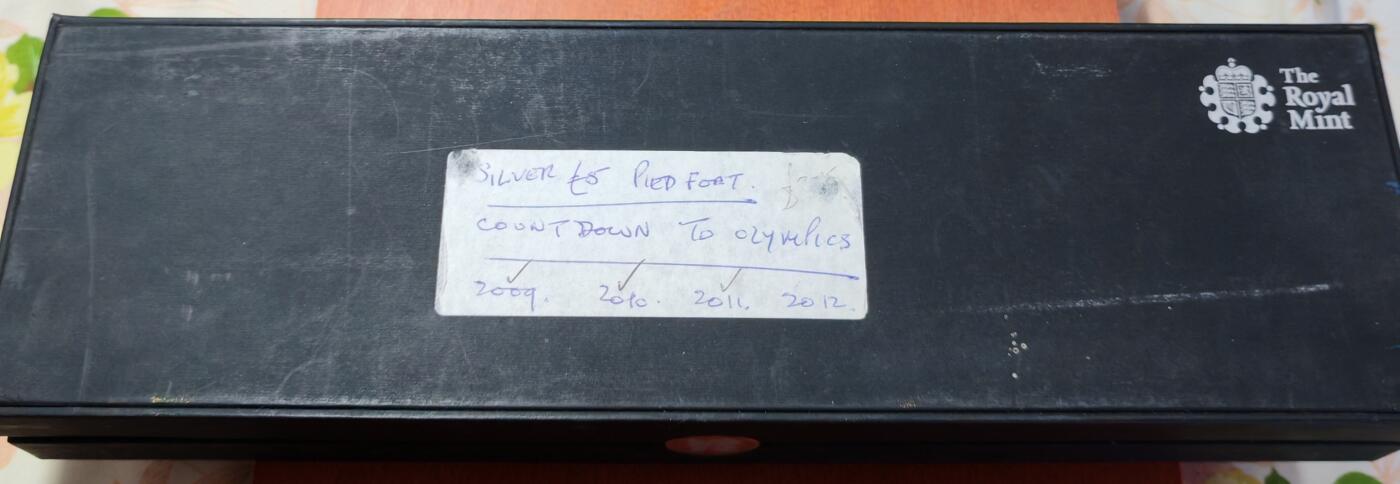 The
Royal
Mint
SILVER £5 PIEDFORT.
COUNTDOWN TO OLYMPICS
2009. 2010. 2011. 2012.